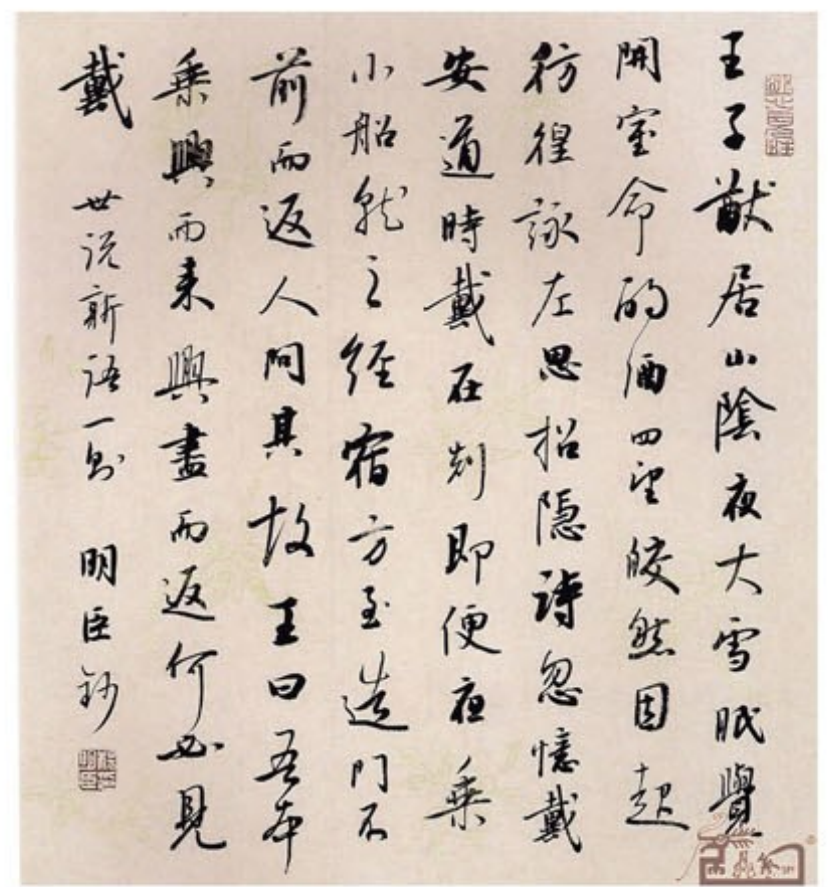 王子猷居山陰夜大雪眠覺
開室命酌酒四望皎然因起
彷徨詠左思招隱詩忽憶戴
安道時戴在剡即便夜乘
小船就之經宿方至造門不
前而返人問其故王曰吾本
乘興而來興盡而返何必見
戴
世说新语一则 明臣钞